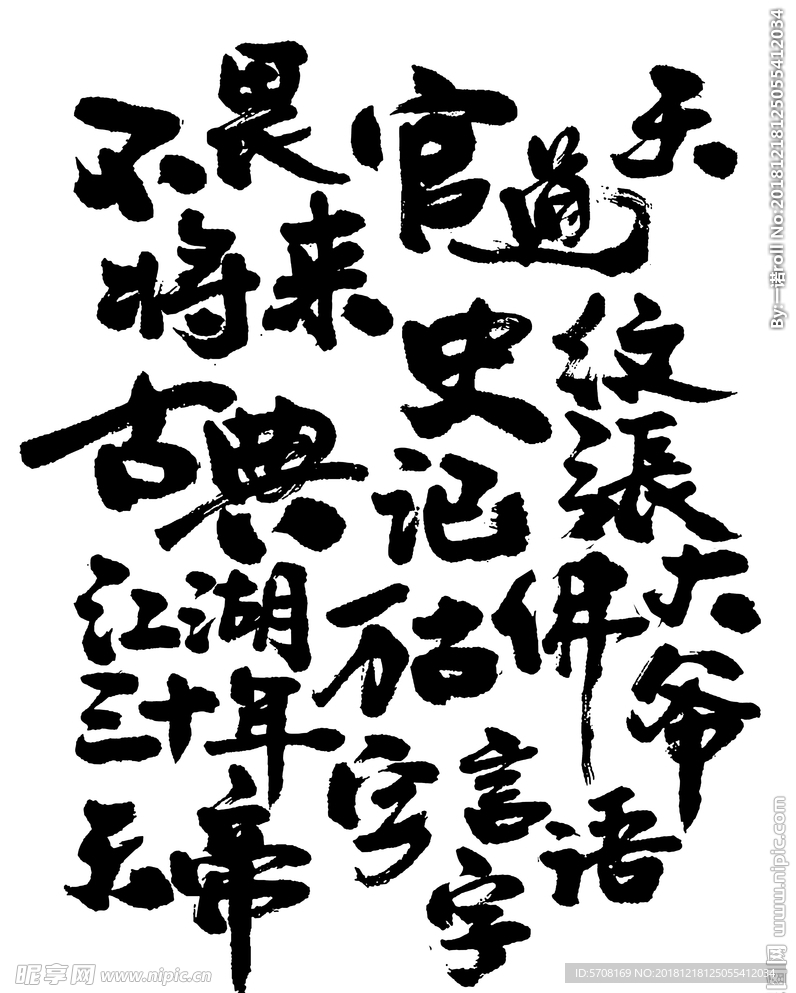 不畏
官道
天
将来
史记
纹張
古典
江湖
三十年
万古
佛
大爷
天帝
字
言字
语
By:一诺roll No:20181218125055412034
www.nipic.com
昵图网
昵享网 www.nipic.cn
ID:5708169 NO:20181218125055412034